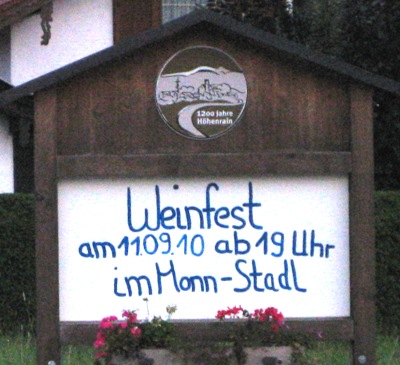 1200 Jahre
Höhenrain
Weinfest
am 11.09.10 ab 19 Uhr
im Monn-Stadl